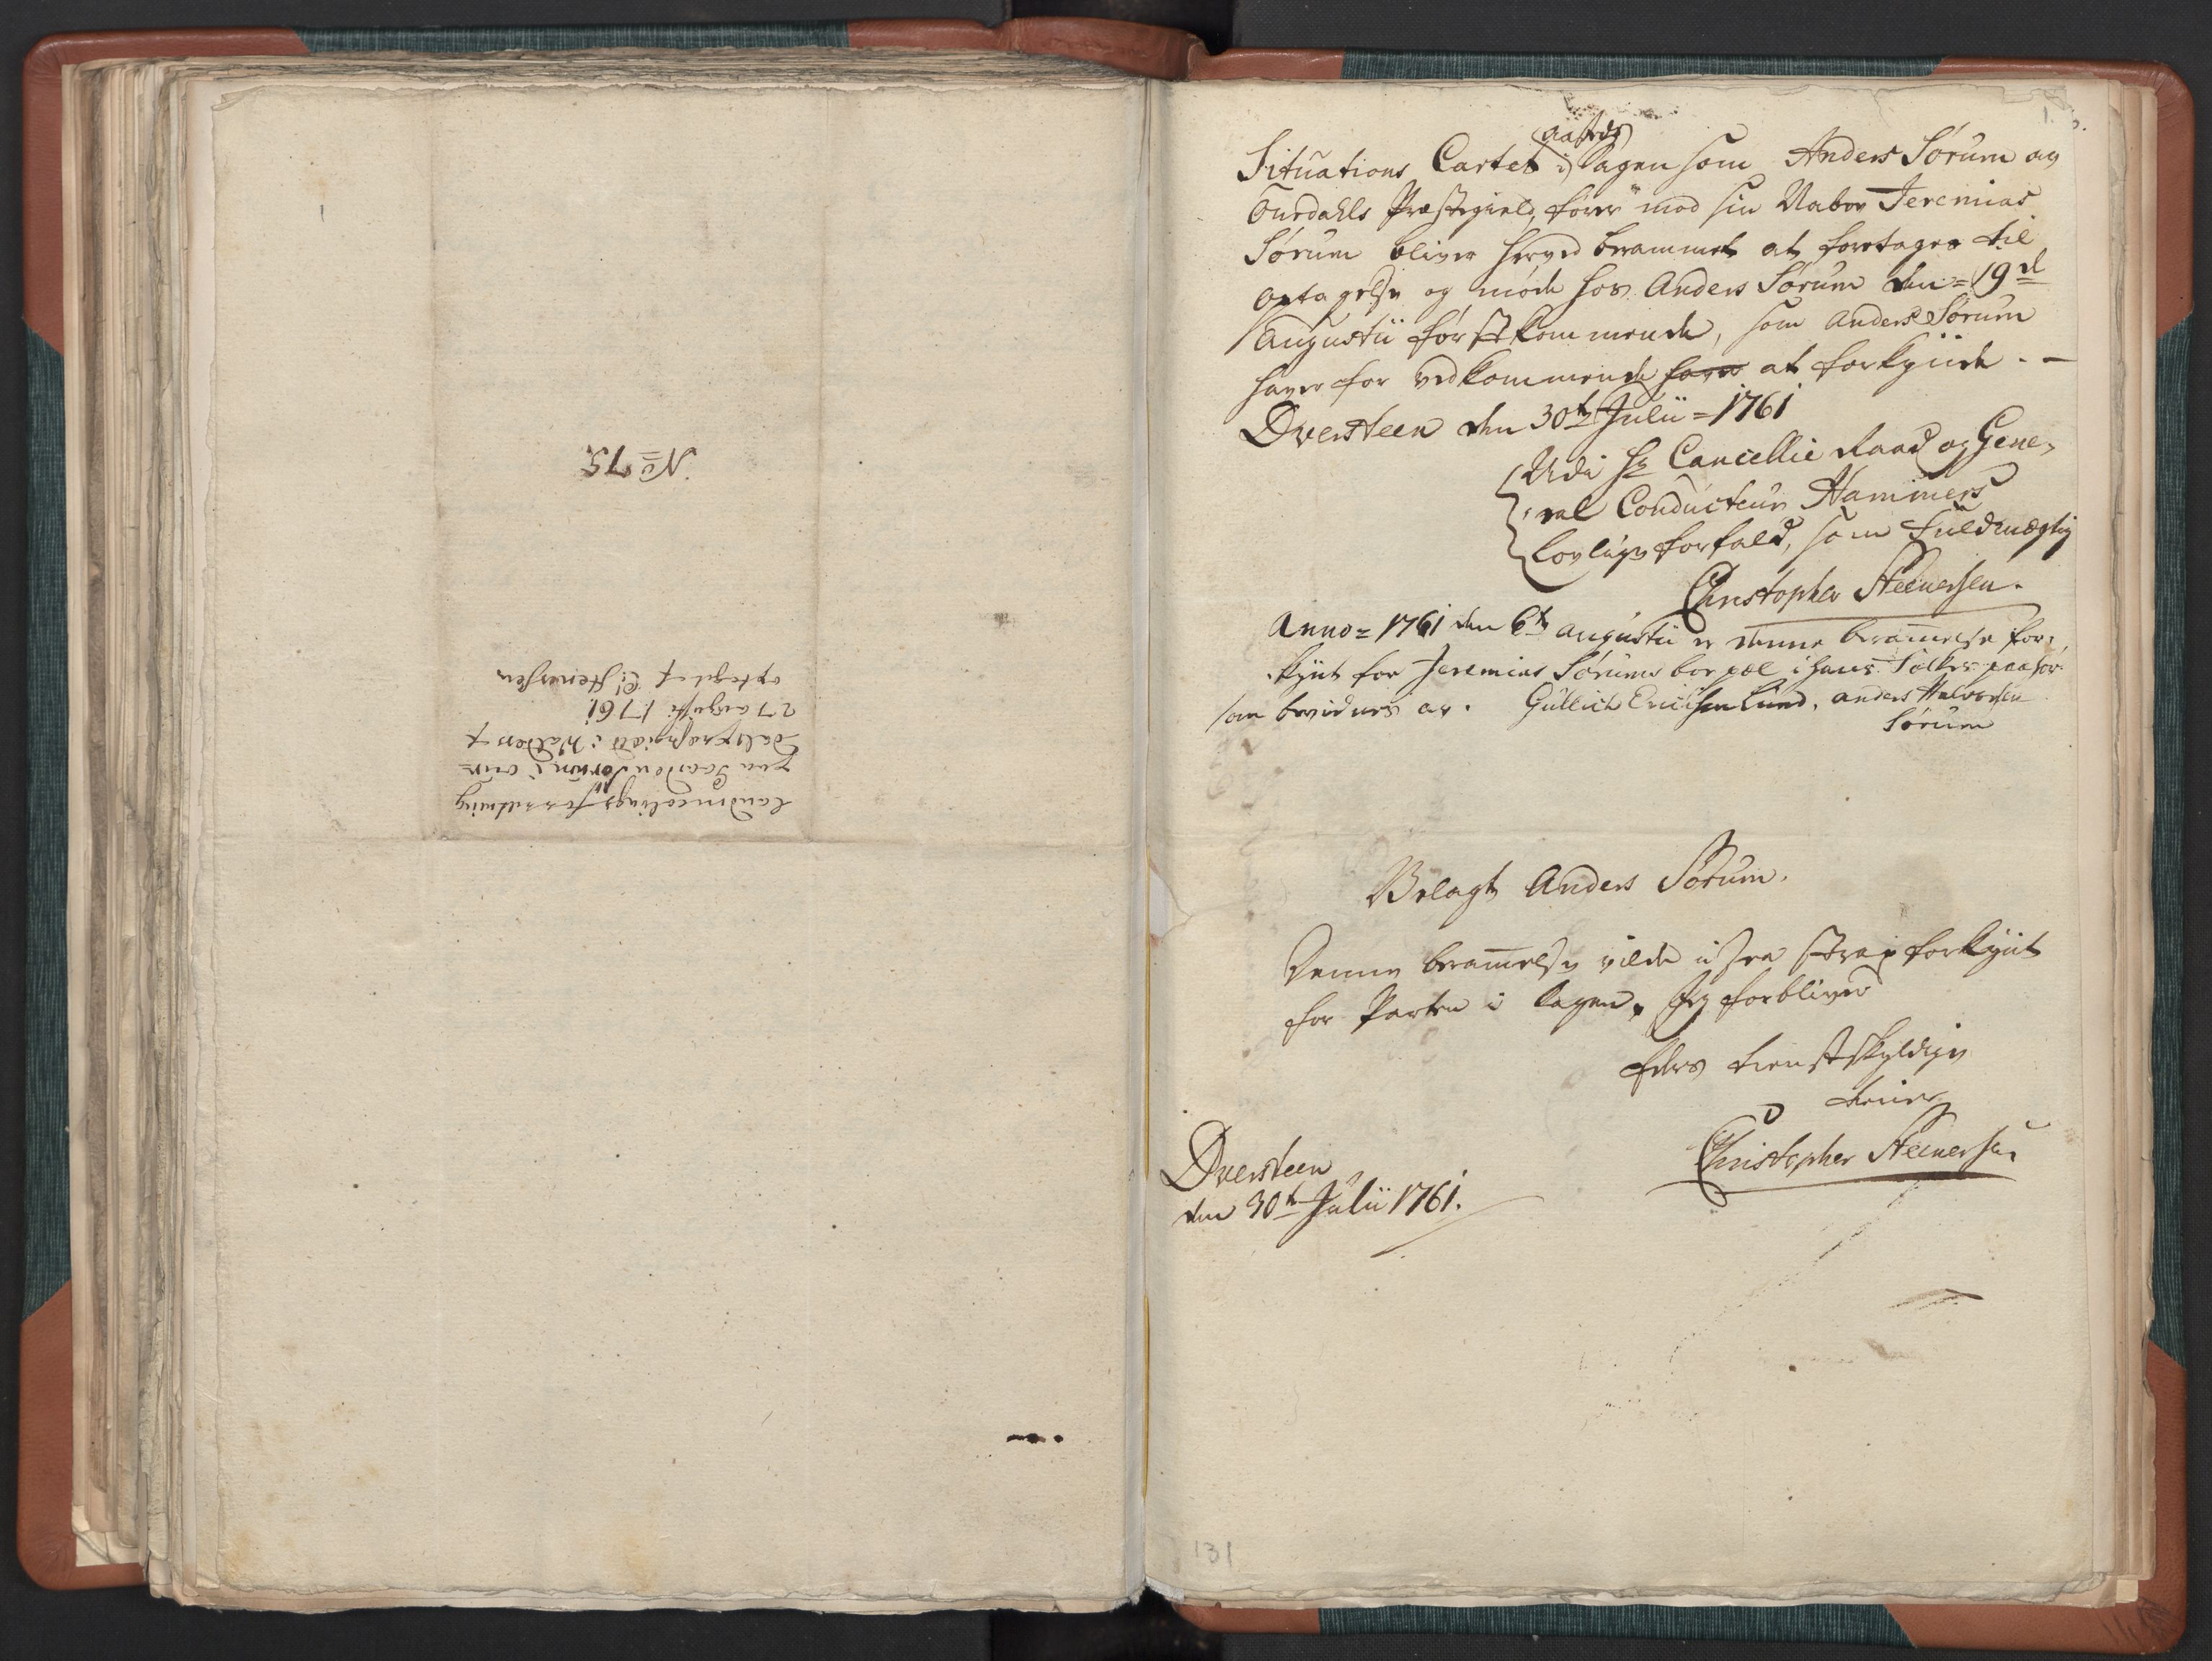 No 75
landmaalings forretning
paa Gaarden Sørum i Aur-
dals præstegield i Walders
27 augusti 1761
optaget af C: Steenersen
aasteds
Situations Cartet i Sagen som Anders Sørum og
Ourdahls Præstegield, fører mod sin Naboe Jeremias
Sørum bliver herved berammet at foretages til
optagelse og møde hos Anders Sørum den = 19de
Augustii førstkommende, som Anders Sørum
haver for vedkommende at forkynde. —
Qversteen den 30te Julii = 1761
Udi Hr Cancellie Raad og Gene-
ral Conducteur Hammers
lovlige forfald, som Fuldmægtig
Christopher Steenersen.
Anno = 1761 den 6te augustii er denne berammelse for-
kynt for Jeremias Sørums bopæl i hans Folkes paahør
som bevidnes av. Gullich Erichsen Lund, anders Halvorsen
Sørum
Velagt Anders Sørum.
Denne beramelse vilde i see strax forkynt
for Parten i Sagen. Jeg forbliver
Eders tienstskyldige
tiener
Christopher Steenersen
Qversteen
den 30te Julii 1761.
131